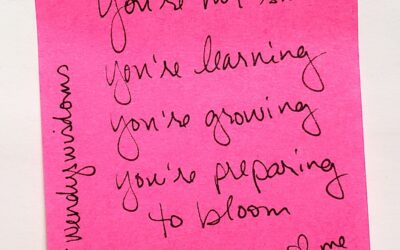 you're not
you're learning
you're growing
you're preparing
to bloom
me
wendyswisdoms